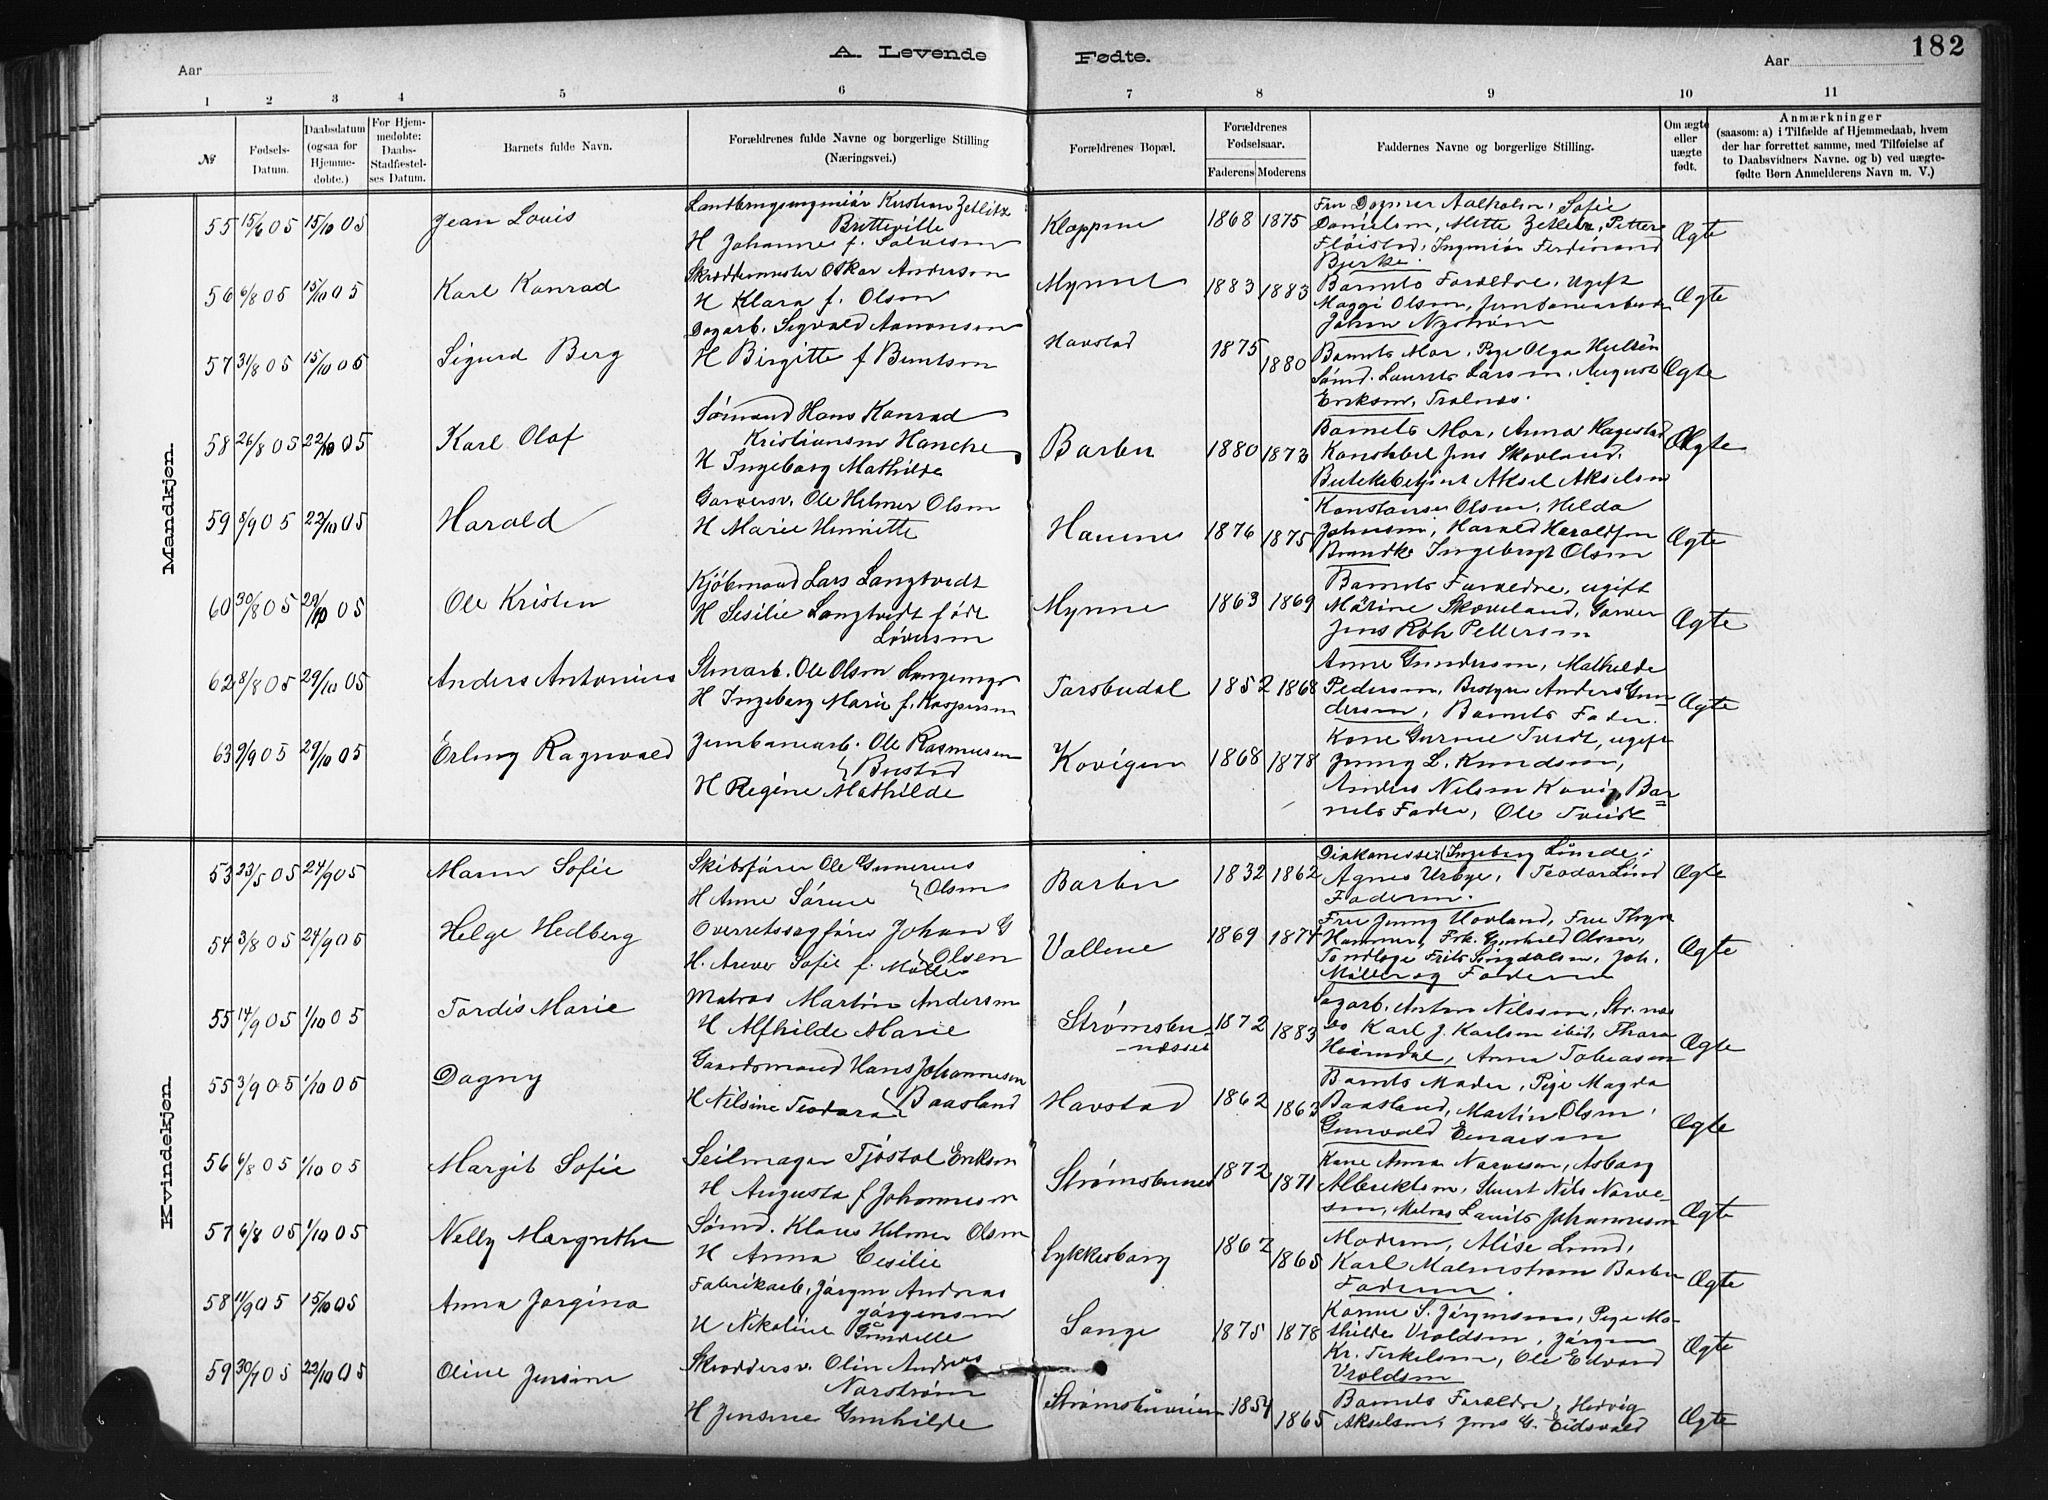 A. Levende Fødte.
182
Aar
Aar
1 2 3 4 5 6 7 8 9 10 11
№
Fødsels-Datum.
Daabsdatum (ogsaa for Hjemmedøbte.)
For Hjemmedøbte: Daabs-Stadfæstelses Datum.
Barnets fulde Navn.
Forældrenes fulde Navne og borgerlige Stilling (Næringsvei.)
Forældrenes Bopæl.
Forældrenes Fødselsaar.
Faderens Moderens
Faddernes Navne og borgerlige Stilling.
Om ægte eller uægte født.
Anmærkninger
(saasom: a) i Tilfælde af Hjemmedaab, hvem der har forrettet samme, med Tilføielse af to Daabsvidners Navne. og b) ved uægtefødte Børn Anmelderens Navn m. V.)
Mandkjøn.
55 15/6 05 15/10 05 Jean Louis
Kristian Zetlitz
Bretteville
H Johanne f.
1868 1875
Sofie
Danielsen, Mette Zetlitz, Petter
Fløistad, Ingeniør Ferdinand
Bjerke.
Ægte
56 6/8 05 15/10 05 Karl Konrad
Skræddermester Oskar Andersen
H Klara f. Olsen
1883 1883
Barnets Forældre, Ugift
Maggi Olsen, Jernbanearbeider
Johan Nystrøm
Ægte
57 31/8 05 15/10 05 Sigurd Berg
Dagarb. Sigvald Aanonsen
H Birgitte f Berntsen
Havstad
1875 1880
Barnets Mor, Pige Olga
Sømd. Laurits Larsen, August
Eriksen,
Ægte
58 26/8 05 22/10 05 Karl Olaf
Sømand Hans Konrad
Kristiansen Hancke
H Ingeborg Mathilde
Barbu
1880 1873
Barnets Mor, Anna Hagestad
Konstabel Jens Skovland,
Butikbetjent Aksel Akselsen
Ægte
59 8/9 05 22/10 05 Harald
Garversv. Ole Hilmer Olsen
H Marie Henriette
1876 1875
Konstanse Olsen, Hilda
Johnsen, Harald Haroldsen
Ingebregt Olsen
Ægte
60 30/8 05 29/10 05 Ole Kristen
Kjøbmand Lars Langtvedt
H Sesilie Langtvedt født
Myrene
1863 1869
Barnets Forældre, ugift
Marine Skoveland, Garver
Jens Pettersen
Ægte
62 8/8 05 29/10 05 Anders Antonius
Stenarb. Ole Olsen
H Ingeborg Marie f. Kaspersen
Torsbudal
1852 1868
Anne Gundersen, Mathilde
Pedersen, Anders Gundersen,
Barnets Fader.
Ægte
63 9/9 05 29/10 05 Erling Ragnvald
Jernbanearb. Ole Rasmussen
Bustad
H Regine Mathilde
Kovigen
1868 1878
Kone Gurine Tveidt, ugift
Jenny L. Knudsen,
Anders Nilsen Kovig, Barnets
Fader, Ole Tveidt
Kvindekjøn.
53 23/5 05 24/9 05 Maren Sofie
Skibsfører Ole Gunerius
Olsen
H Anne Sørine
Barbu
1832 1862
Diakonisse Ingeborg Lunde,
Agnes Urbye, Teodor Lind
Faderen.
Ægte
54 3/8 05 24/9 05 Helge Hedberg
Overretssagfører Johan G
Olsen
Sofie f. Møller
Vollene
1869 1874
Fru Jenny Hovland, Fru
Hammer, Frk. Gunhild Olsen,
Tandlæge Frits Joh.
Møller og Faderen
Ægte
55 14/9 05 1/10 05 Tordis Marie
Matros Martin Andersen
H Alfhilde Marie
Strømsbunæsset
1872 1883
Anton Nilssen,
Karl J. Karlsen ibid, Thora
Heimdal, Anna Tobiasen
Ægte
55 3/9 05 1/10 05 Dagny
Gaardsmand Hans Johannesen
Baasland
H Nilsine Teodora
Havstad
1862 1863
Barnets Moder, Pige Magda
Baasland, Martin Olsen,
Gunvald Einarsen
Ægte
56 6/8 05 1/10 05 Margit Sofie
Seilmager Tjøstol Eriksen
H Augusta f Johannesen
1872 1871
Kone Anna Narvesen, Asborg
Albrektsen, Stuert Nils Narvesen,
Matros Laurits Johannesen
Ægte
57 6/8 05 1/10 05 Nelly Margrethe
Sømd. Klaus Hilmer Olsen
H Anna Cesilie
Lykkesborg
1862 1865
Moderen, Alise Lund,
Karl Malmstrøm Barbu
Faderen.
Ægte
58 11/9 05 15/10 05 Anna Jorgina
Fabrikarb. Jørgen Andreas
Jørgensen
H Nikoline Gundille
Songe
1875 1878
Konne S. Jørgensen, Pige Mathilde
Vroldsen, Jørgen
Kr. Terkelsen, Ole Edvard
Vroldsen
Ægte
59 30/7 05 22/10 05 Oline Jensine
Skræddersv. Olin Andreas
Norstrøm
H Jensine Gunhilde
1854 1865
Barnets Forældre, Hedvig
Akselsen, Jens G. Eidsvold
Ægte